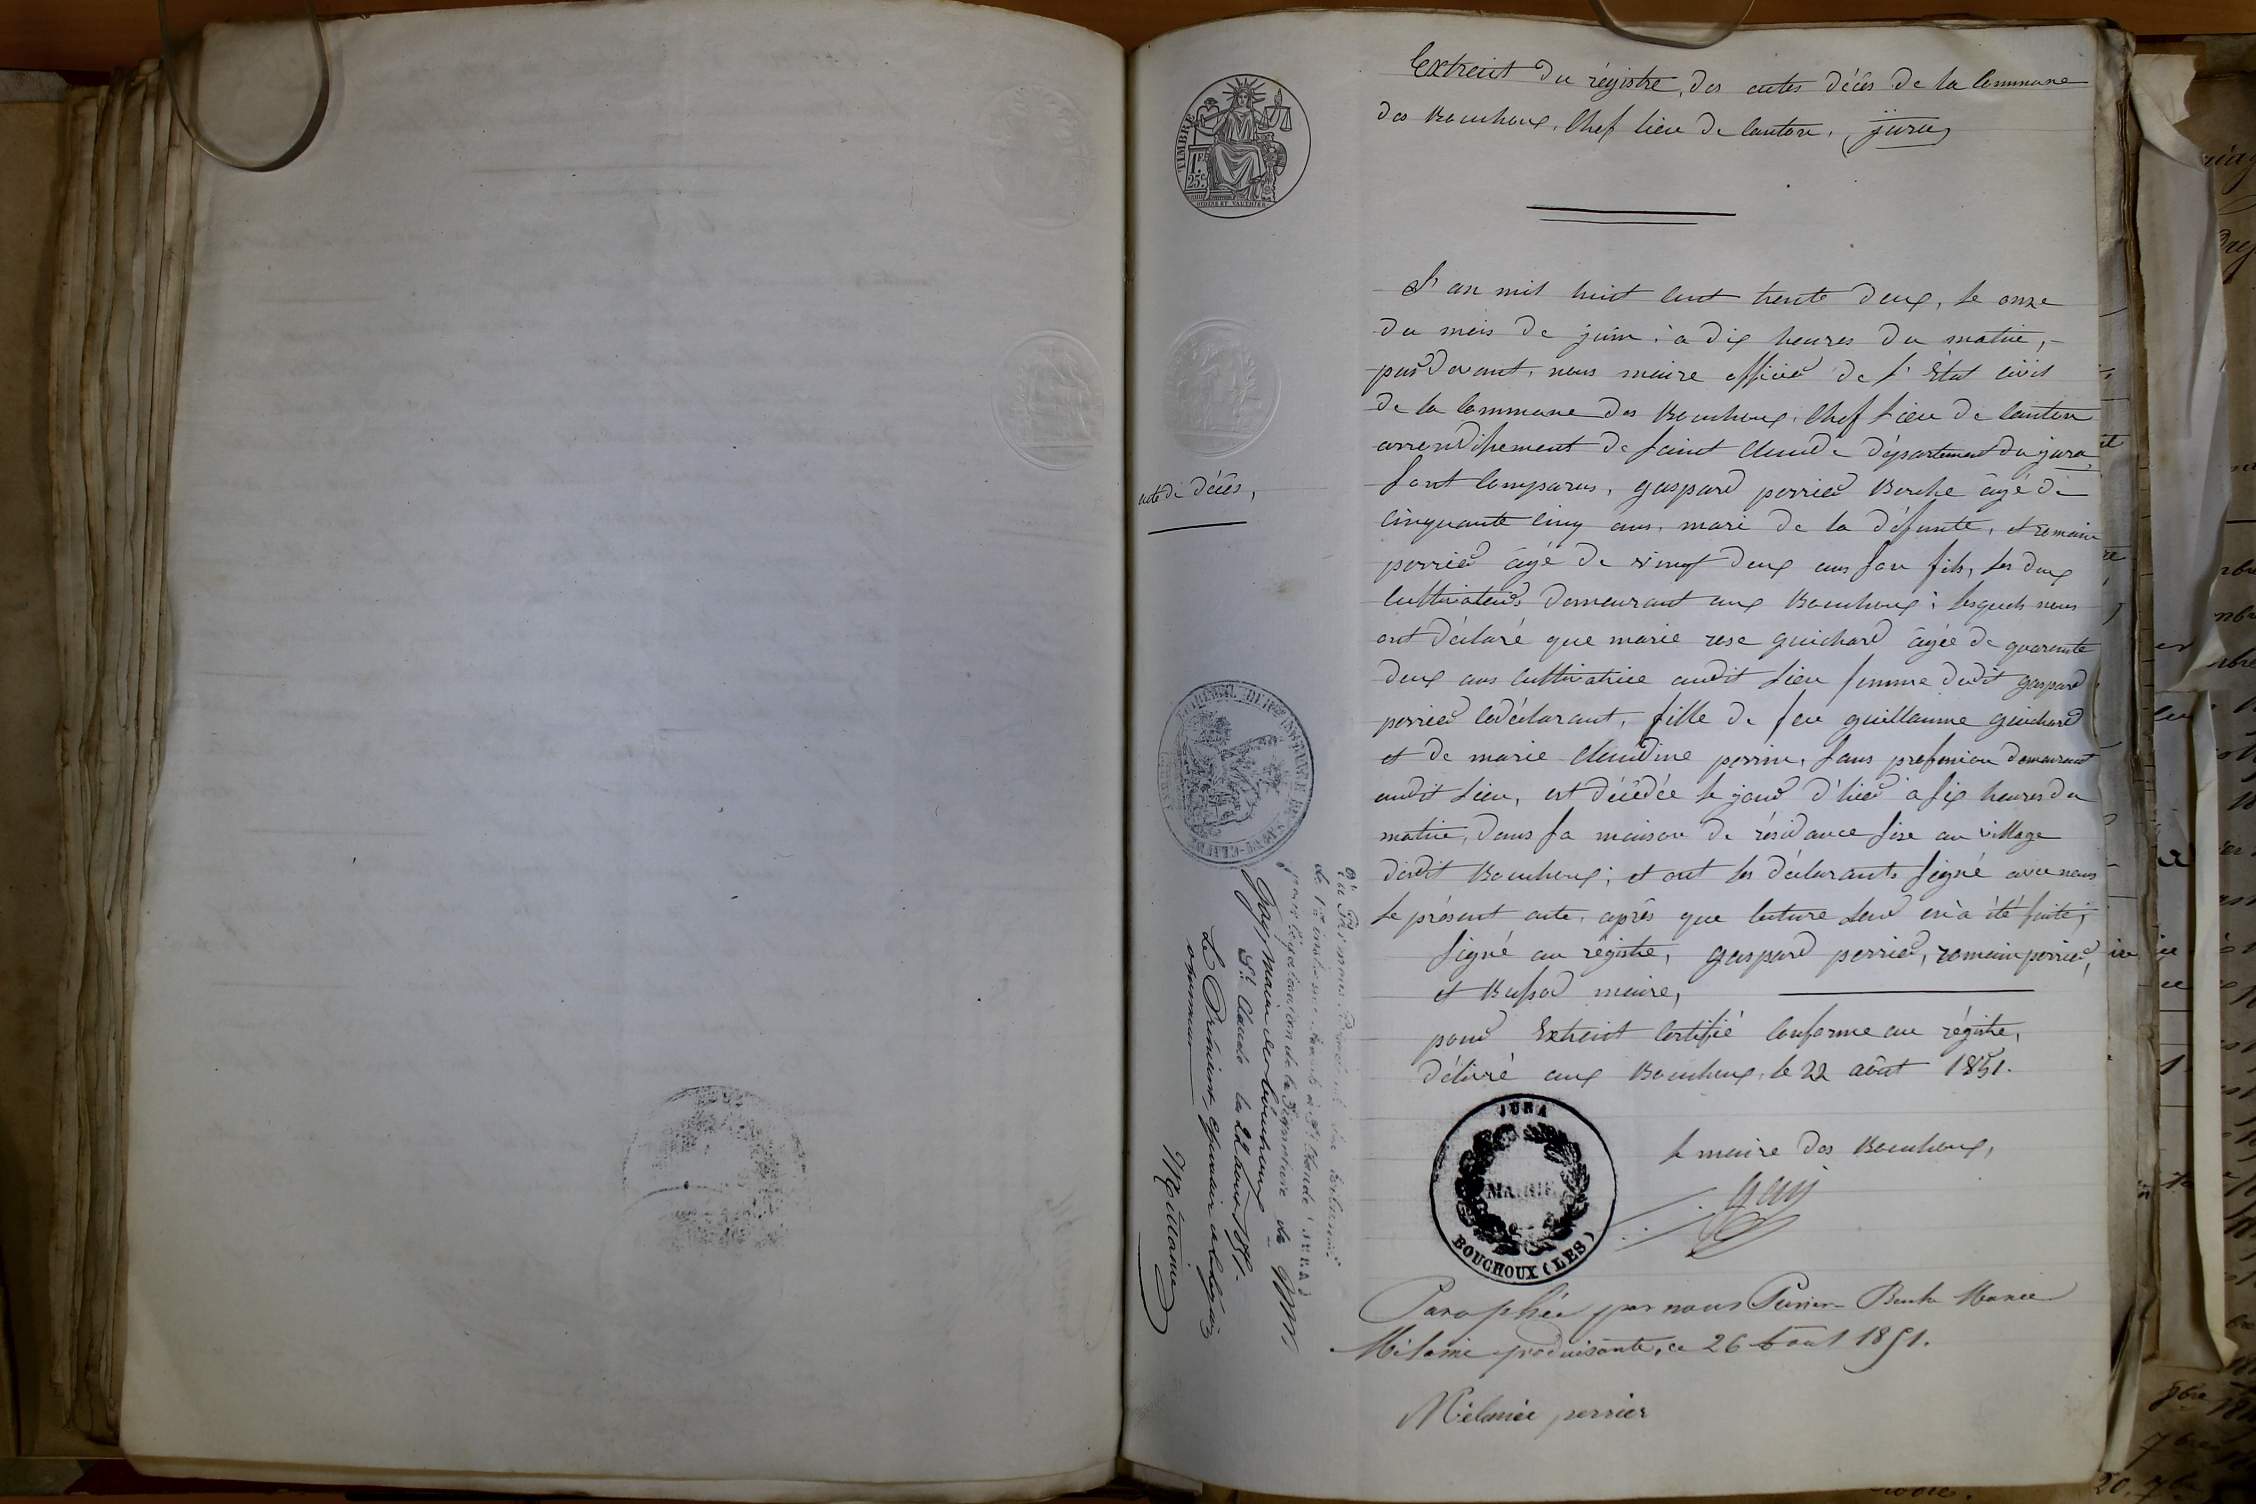 Extrait du régistre, des actes décès de la Commune
des Bouchoux, Chef lieu de Canton, (Jura)
TIMBRE
1 FR
25 C
L'an mil huit cent trente deux, le onze
du mois de juin, à dix heures du matin,
pardevant, nous maire officier de l'État civil
de la Commune des Bouchoux, Chef lieu de Canton
arrondissement de Saint Claude département du jura,
Sont Comparus, gaspard perrier Bouche âgé de
cinquante cinq ans, mari de la défunte, et romain
perrier âgé de vingt deux ans son fils, les deux
Cultivateurs demeurant aux Bouchoux; lesquels nous
ont déclaré que marie rose guichard âgée de quarente
deux ans Cultivatrice audit lieu femme dudit gaspard
perrier le déclarant, fille de feu guillaume guichard
et de marie Claudine perrin, sans profession demeurant
audit lieu, est décédée le jour d'hier à six heures du
matin, dans sa maison de résidance sise au village
dudit Bouchoux; et ont les déclarants signé avec nous
le présent acte, après que lecture leur en a été faite;
signé au régistre, gaspard perrier, romain perrier,
et Bussod maire,
pour Extrait Certifié Conforme au régistre,
délivré aux Bouchoux, le 22 août 1851.
le maire des Bouchoux,
Gay
JURA
MAIRIE
BOUCHOUX (LES)
Paraphée par nous Perrier Bouche Marie
Mélanie produisante, ce 26 Aout 1851.
Mélanie perrier
acte de décès,
Vu par nous Président du tribunal
de 1re instance séant à St Claude (JURA)
pour légalisation de la Signature de Mr
Gay, maire des bouchoux
St Claude le 22 aout 1851.
Le Président